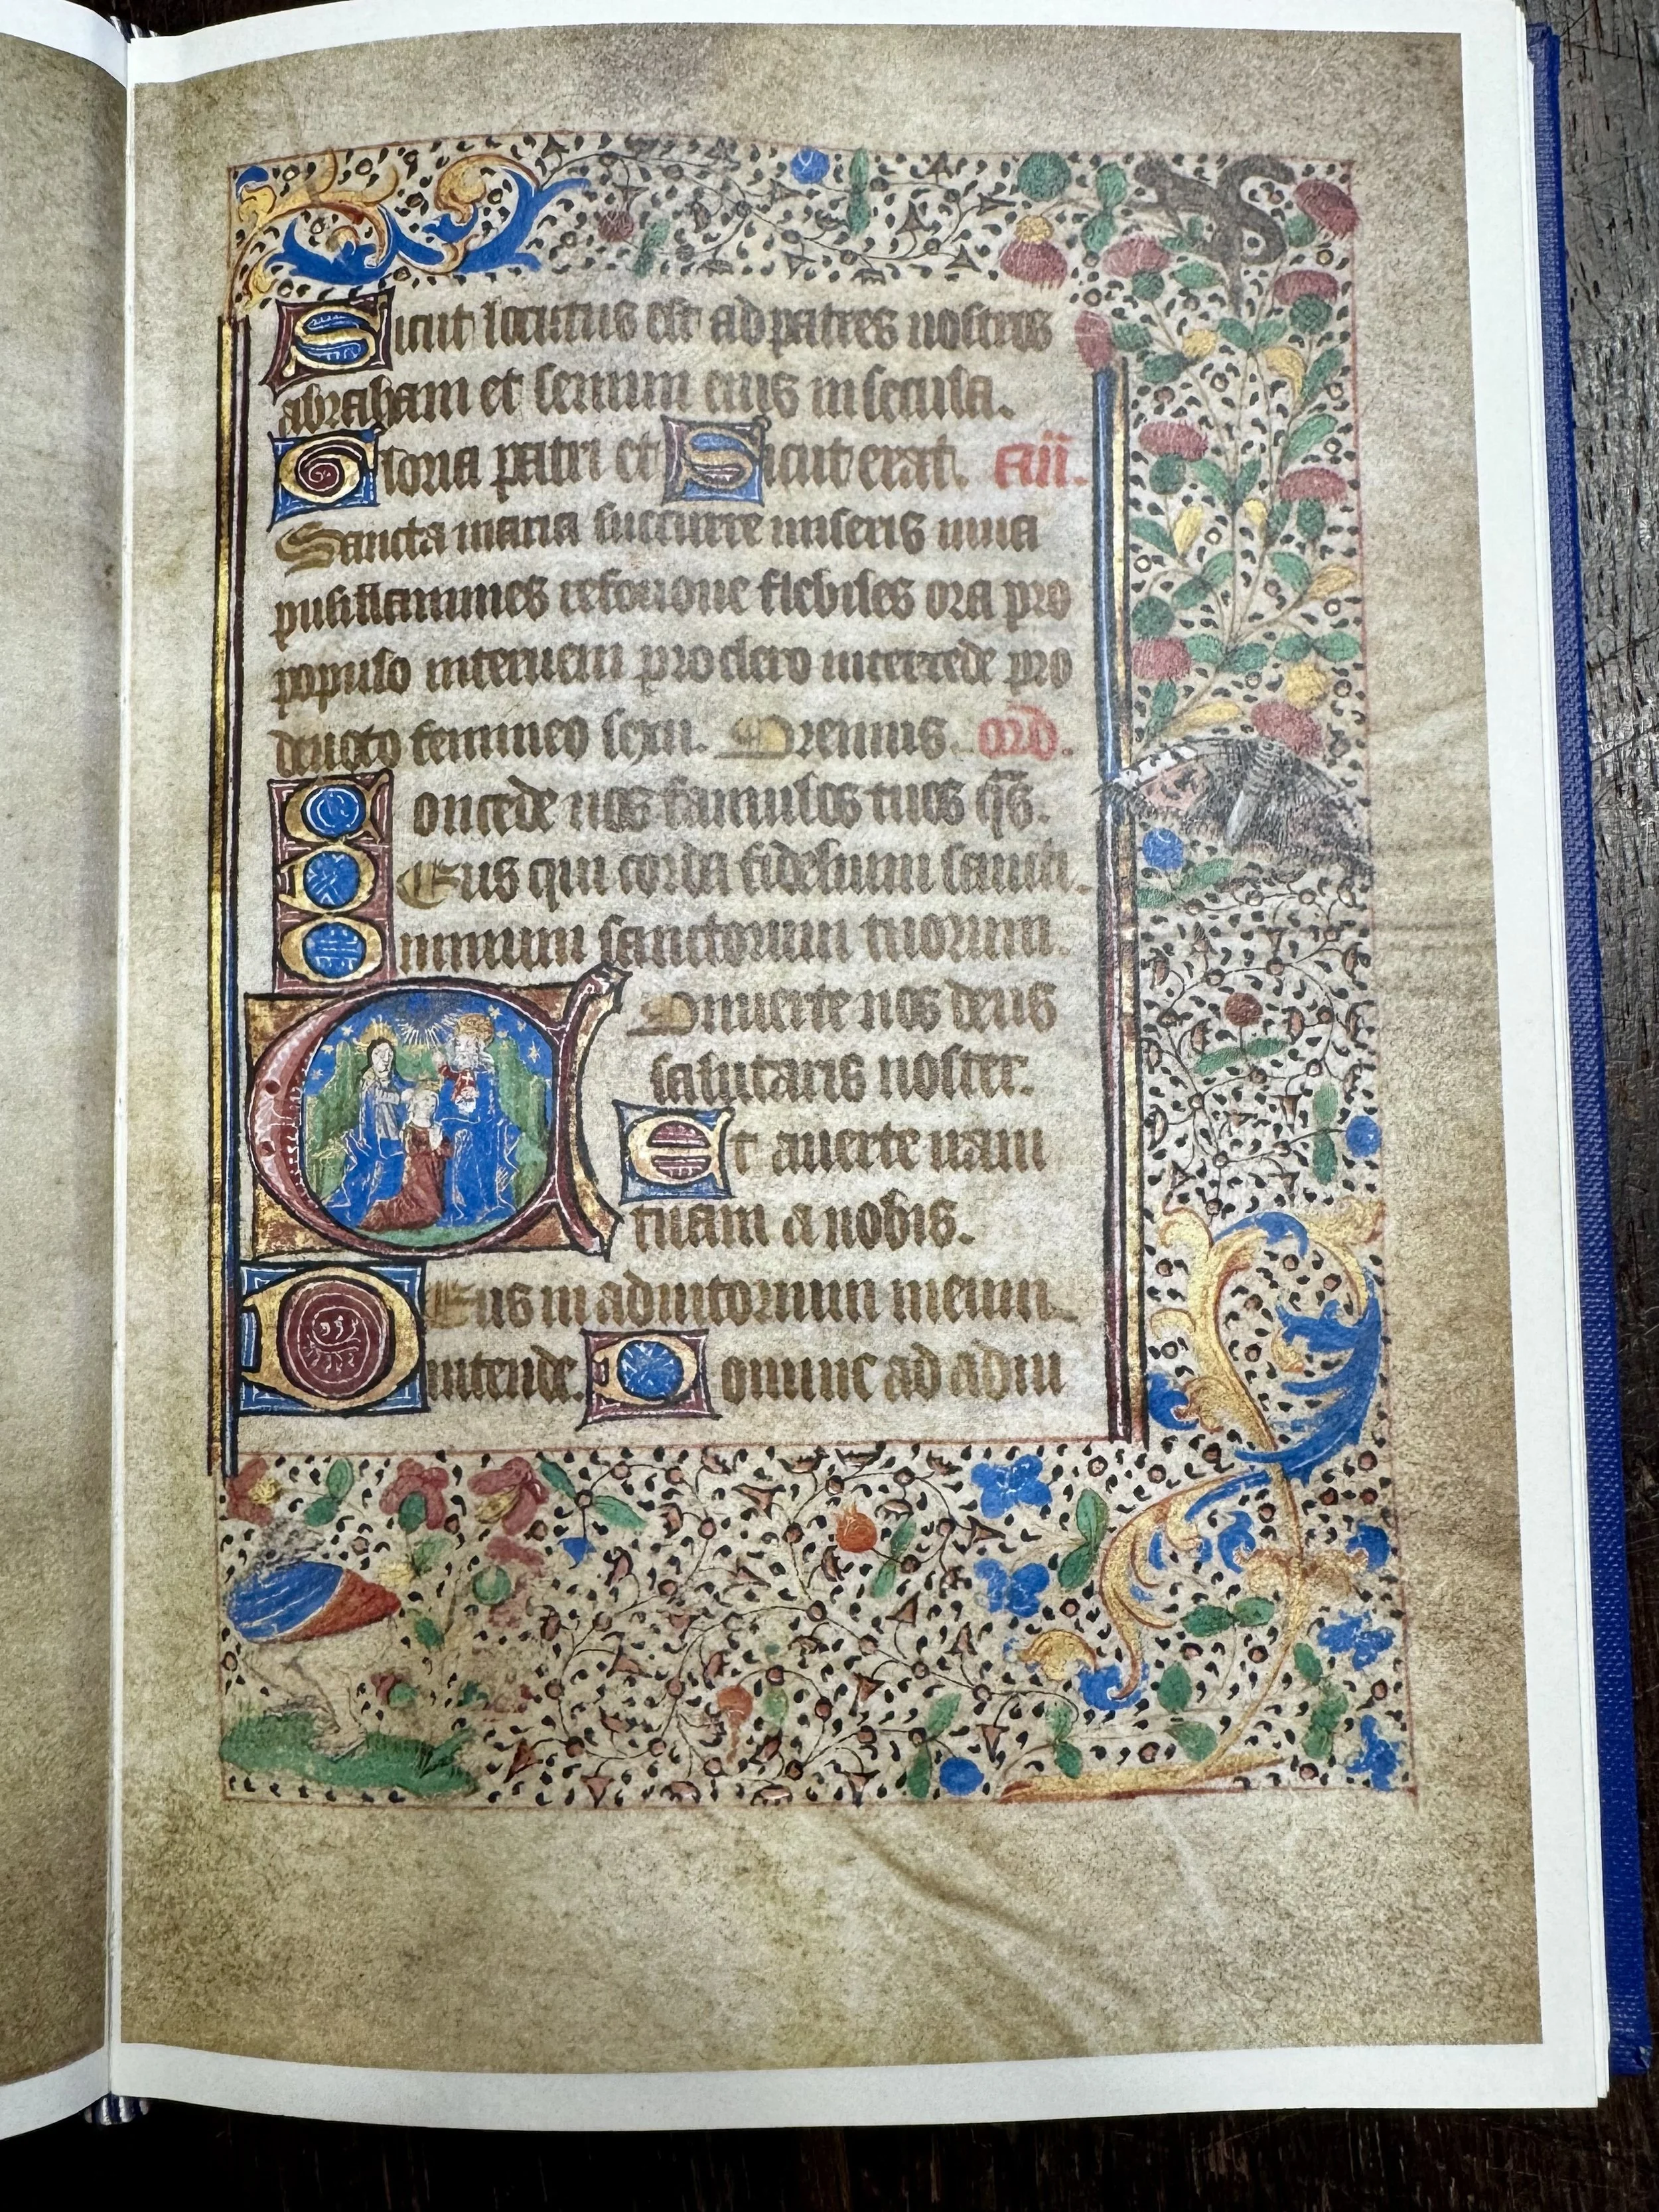 Sicut locutus est ad patres nostros
abraham et semini eius in secula.
Gloria patri et Sicut erat. añ.
Sancta maria succurre miseris iuua
pusillanimes refoue flebiles ora pro
populo interueni pro clero intercede pro
deuoto femineo sexu. Oremus. orõ.
Concede nos famulos tuos qs̄.
DEus qui corda fidelium sancti.
Omnium sanctorum tuorum.
COnuerte nos deus
salutaris noster.
Et auerte iram
tuam a nobis.
DEus in adiutorium meum
intende. Domine ad adiu